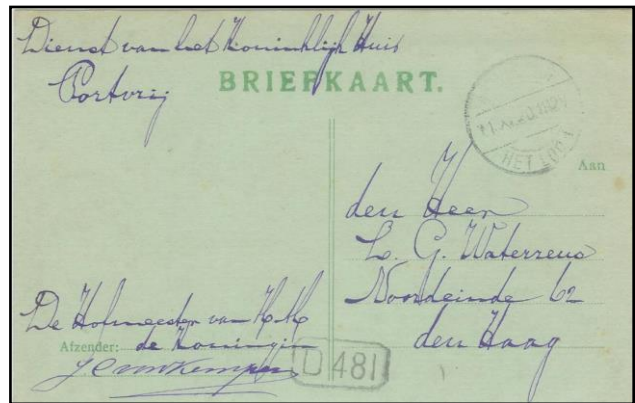 Dienst van het Koninklijk Huis
Portvrij
BRIEFKAART.
HET LOO 1
Aan
den Heer
L. G. Waterreus
Noordeinde 62
den Haag
De Hofmeester van H.M.
Afzender: de Koningin
D 481